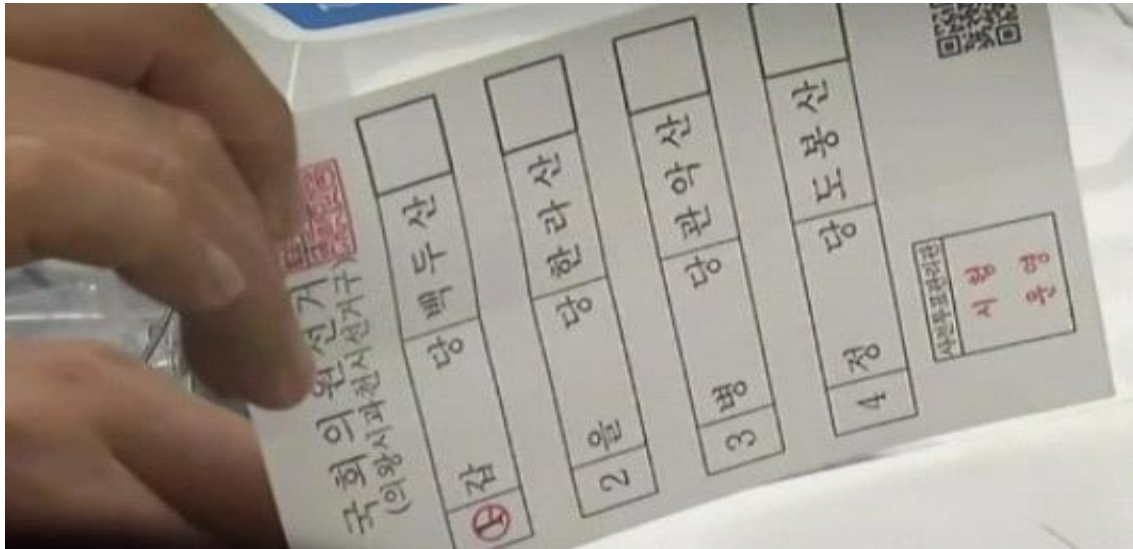 국회의원선거
(의왕시과천시선거구)
1 갑 당 백두산
2 을 당 한라산
3 병 당 관악산
4 정 당 도봉산
사전투표관리관
시험
운영